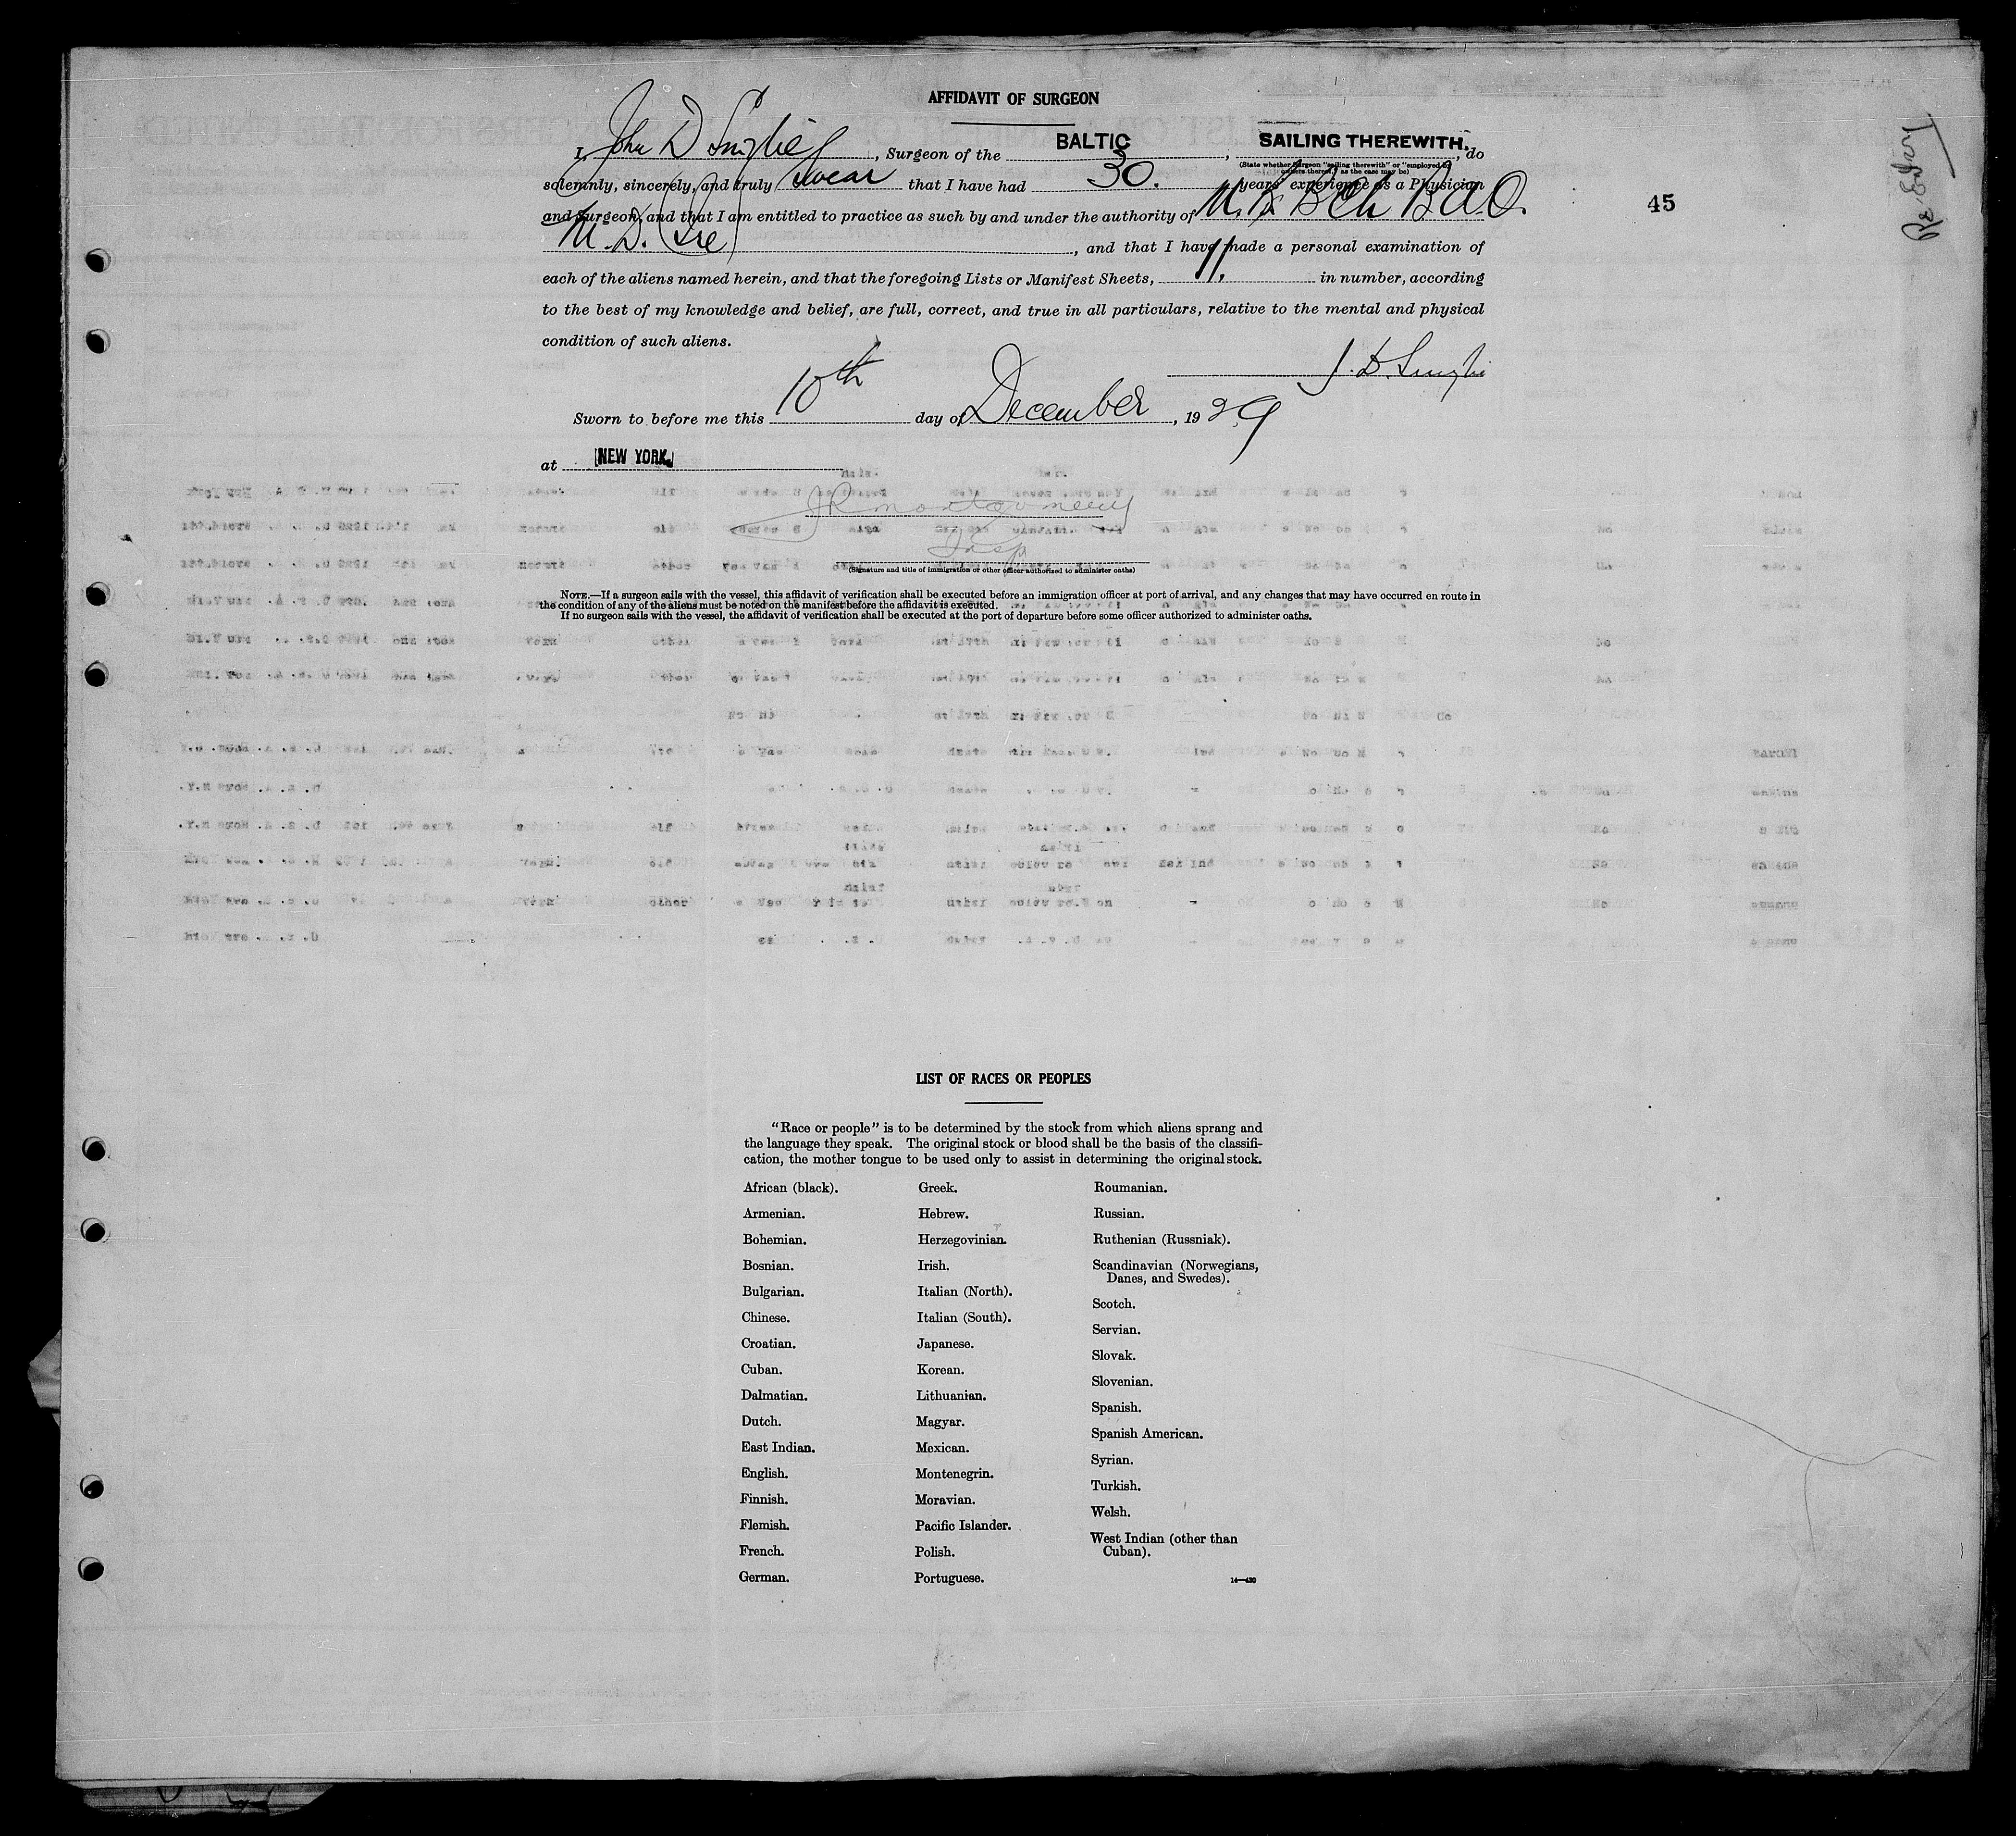 AFFIDAVIT OF SURGEON
I, John D , Surgeon of the BALTIC, SAILING THEREWITH., do
(State whether Surgeon "sailing therewith" or "employed by owners thereof," as the case may be)
solemnly, sincerely, and truly swear that I have had 30. years' experience as a Physician
and Surgeon, and that I am entitled to practice as such by and under the authority of M.B. BCh BAO.
M.D. (Ire), and that I have made a personal examination of
each of the aliens named herein, and that the foregoing Lists or Manifest Sheets, 11, in number, according
to the best of my knowledge and belief, are full, correct, and true in all particulars, relative to the mental and physical
condition of such aliens.
J. D.
Sworn to before me this 10th day of December, 1929
at NEW YORK.
Insp
(Signature and title of immigration or other officer authorized to administer oaths)
NOTE.—If a surgeon sails with the vessel, this affidavit of verification shall be executed before an immigration officer at port of arrival, and any changes that may have occurred en route in
the condition of any of the aliens must be noted on the manifest before the affidavit is executed.
If no surgeon sails with the vessel, the affidavit of verification shall be executed at the port of departure before some officer authorized to administer oaths.
45
LIST OF RACES OR PEOPLES
"Race or people" is to be determined by the stock from which aliens sprang and
the language they speak. The original stock or blood shall be the basis of the classifi-
cation, the mother tongue to be used only to assist in determining the original stock.
African (black).
Armenian.
Bohemian.
Bosnian.
Bulgarian.
Chinese.
Croatian.
Cuban.
Dalmatian.
Dutch.
East Indian.
English.
Finnish.
Flemish.
French.
German.
Greek.
Hebrew.
Herzegovinian.
Irish.
Italian (North).
Italian (South).
Japanese.
Korean.
Lithuanian.
Magyar.
Mexican.
Montenegrin.
Moravian.
Pacific Islander.
Polish.
Portuguese.
Roumanian.
Russian.
Ruthenian (Russniak).
Scandinavian (Norwegians,
Danes, and Swedes).
Scotch.
Servian.
Slovak.
Slovenian.
Spanish.
Spanish American.
Syrian.
Turkish.
Welsh.
West Indian (other than
Cuban).
14—430